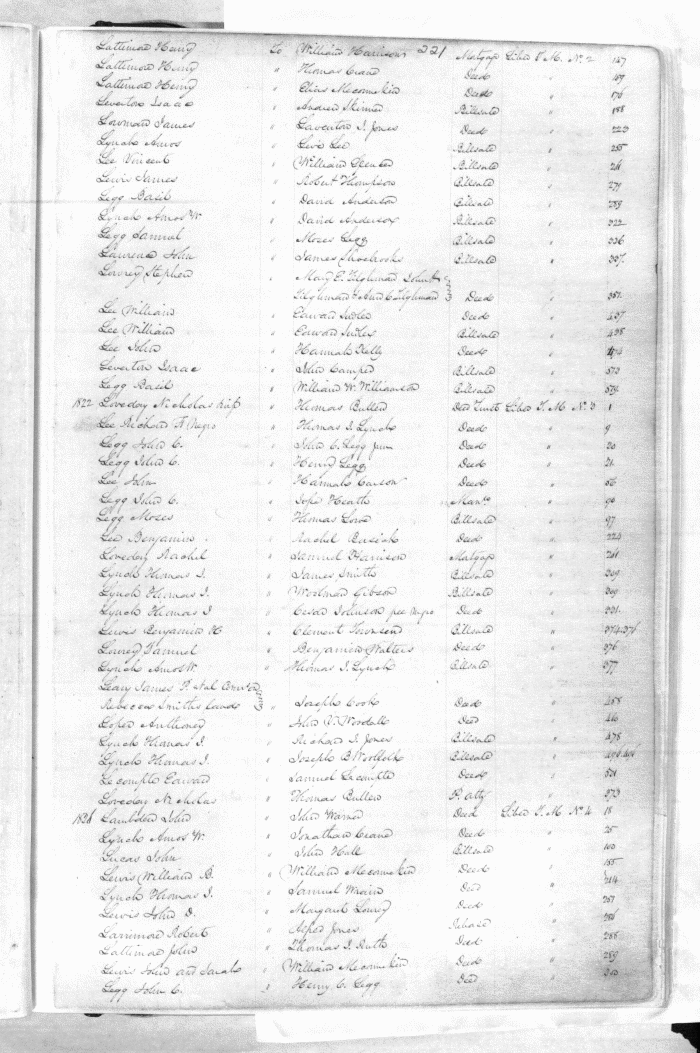 221
Lattimore Henry to William Harlison Matgag Liber T. M. No. 2 157
Lattimore Henry " Thomas Crane Deed " 159
Lattimore Henry " Elias Meconnekin Deed " 176
Leverton Isaac " Andrew Skinner Billsale " 188
Lowman James " Laverton I. Jones Deed " 223
Lynch Amos " Levi Lee Billsale " 255
Lee Vincent " William Spencer Billsale " 261
Lewis James " Robert Thompson Billsale " 279
Legg Basil " David Anderson Billsale " 289
Lynch Amos W. " David Anderson Billsale " 322
Legg Samuel " Moses Legg Billsale " 326
Laurence John " James Shoebrooks Billsale " 337.
Lowrey Stephen " Mary E. Tilghman John
Tilghman & Ann C Tilghman Deed " 351
Lee William " Edward Deed " 437
Lee William " Edward Billsale " 438
Lee John " Hannah Kelly Deed "
Leverton Isaac " John Camper Billsale " 573
Legg Basil " William W. Williamson Billsale " 579.
1822 Loveday Nicholas " Thomas Bullen Deed Trust Liber T. M No. 3 1
Lee Richard F. Negro " Thomas I. Lynch Deed " 9
Legg John C. " John C. Legg Junr Deed " 20
Legg John C. " Henry Legg Deed " 21
Lee John " Hannah Carson Deed " 56
Legg John C. " Heath Mans. " 96
Legg Moses " Thomas Lowe Billsale " 97
Lee Benjamin " Rachel Busick Deed " 224
Loveday Rachel " Samuel Harrison Matgag " 261
Lynch Thomas I. " James Smith Billsale " 309
Lynch Thomas I. " Woolman Gibson Billsale " 309
Lynch Thomas I " Cesar Johnson free Negro Deed " 331.
Lewis Benjamin H " Clement Townsend Billsale " 374-376
Lowrey Samuel " Benjamin Walters Deed " 376
Lynch Amos W. " Thomas I. Lynch Billsale " 377
Leary James P. et al Comrs of
Rebecca Smiths lands " Joseph Cook Deed " 458
Loper Anthoney " John V. Woodall Deed " 460
Lynch Thomas I. " Richard I. Jones Billsale " 478
Lynch Thomas I. " Joseph B. Woolfolk Billsale "
Lecompte Edward " Samuel Lecompte Deed " 521
Loveday Nicholas " Thomas Bullen P. atty " 573
1826 Lambden John " John Warner Deed Liber T. M No. 4 18
Lynch Amos W. " Jonathan Crane Deed " 25
Lucas John " John Hall Billsale " 100
Lewis William B. " William Meconnekin Deed " 155
Lynch Thomas I. " Samuel Deed " 214
Lewis John D. " Margaret Lowrey Deed " 251
Larrimore Robert " Asper Jones Release " 286
Lattimore John " Thomas I. Ruth Deed " 288
Lewis John and Sarah " William Meconnekin Deed " 289
Legg John C. " Henry C. Legg Deed " 300